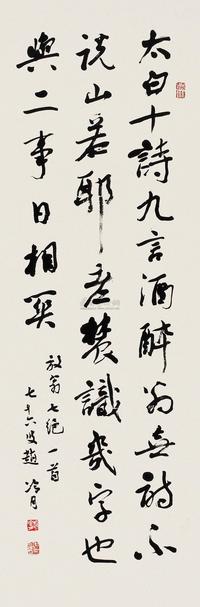 太白十詩九言酒醉翁無詩不
說山若耶老農識幾字也
與二事日相關
放翁七絕一首
七十六叟趙冷月